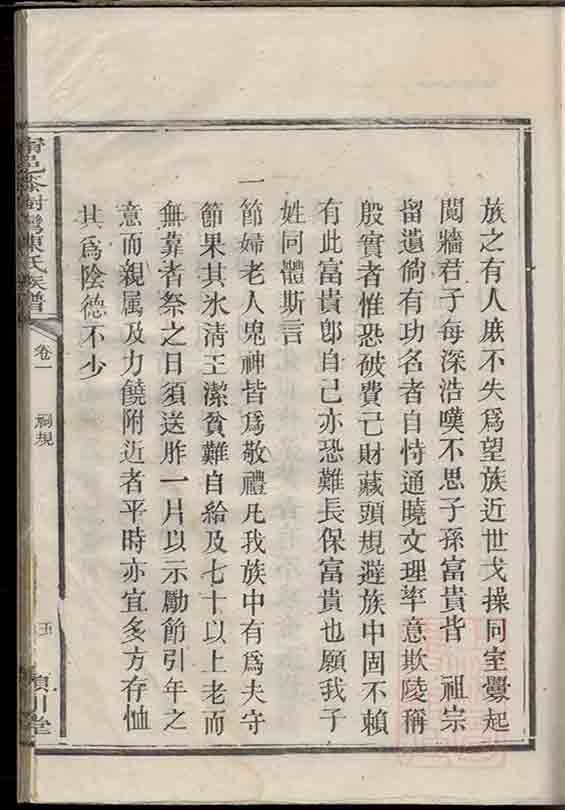 族之有人庶不失爲望族近世戈操同室釁起
閱牆君子每深浩嘆不思子孫富貴皆 祖宗
留遺倘有功名者自恃通曉文理率意欺陵稱
殷實者惟恐破費己財藏頭規避族中固不賴
有此富貴郎自己亦恐難長保富貴也願我子
姓同體斯言
一節婦老人鬼神皆爲敬禮凡我族中有爲夫守
節果其氷清玉潔貧難自給及七十以上老而
無靠者祭之日須送胙一片以示勵節引年之
意而親属及力饒附近者平時亦宜多方存恤
其爲陰德不少
甯邑茶樹灣陳氏族譜
卷一
祠規
五
頴川堂